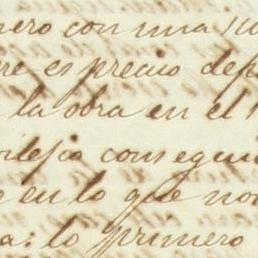 nero con una
re es precio dep
la obra en el
vilejio conseguid
e en lo que no
a: lo primero